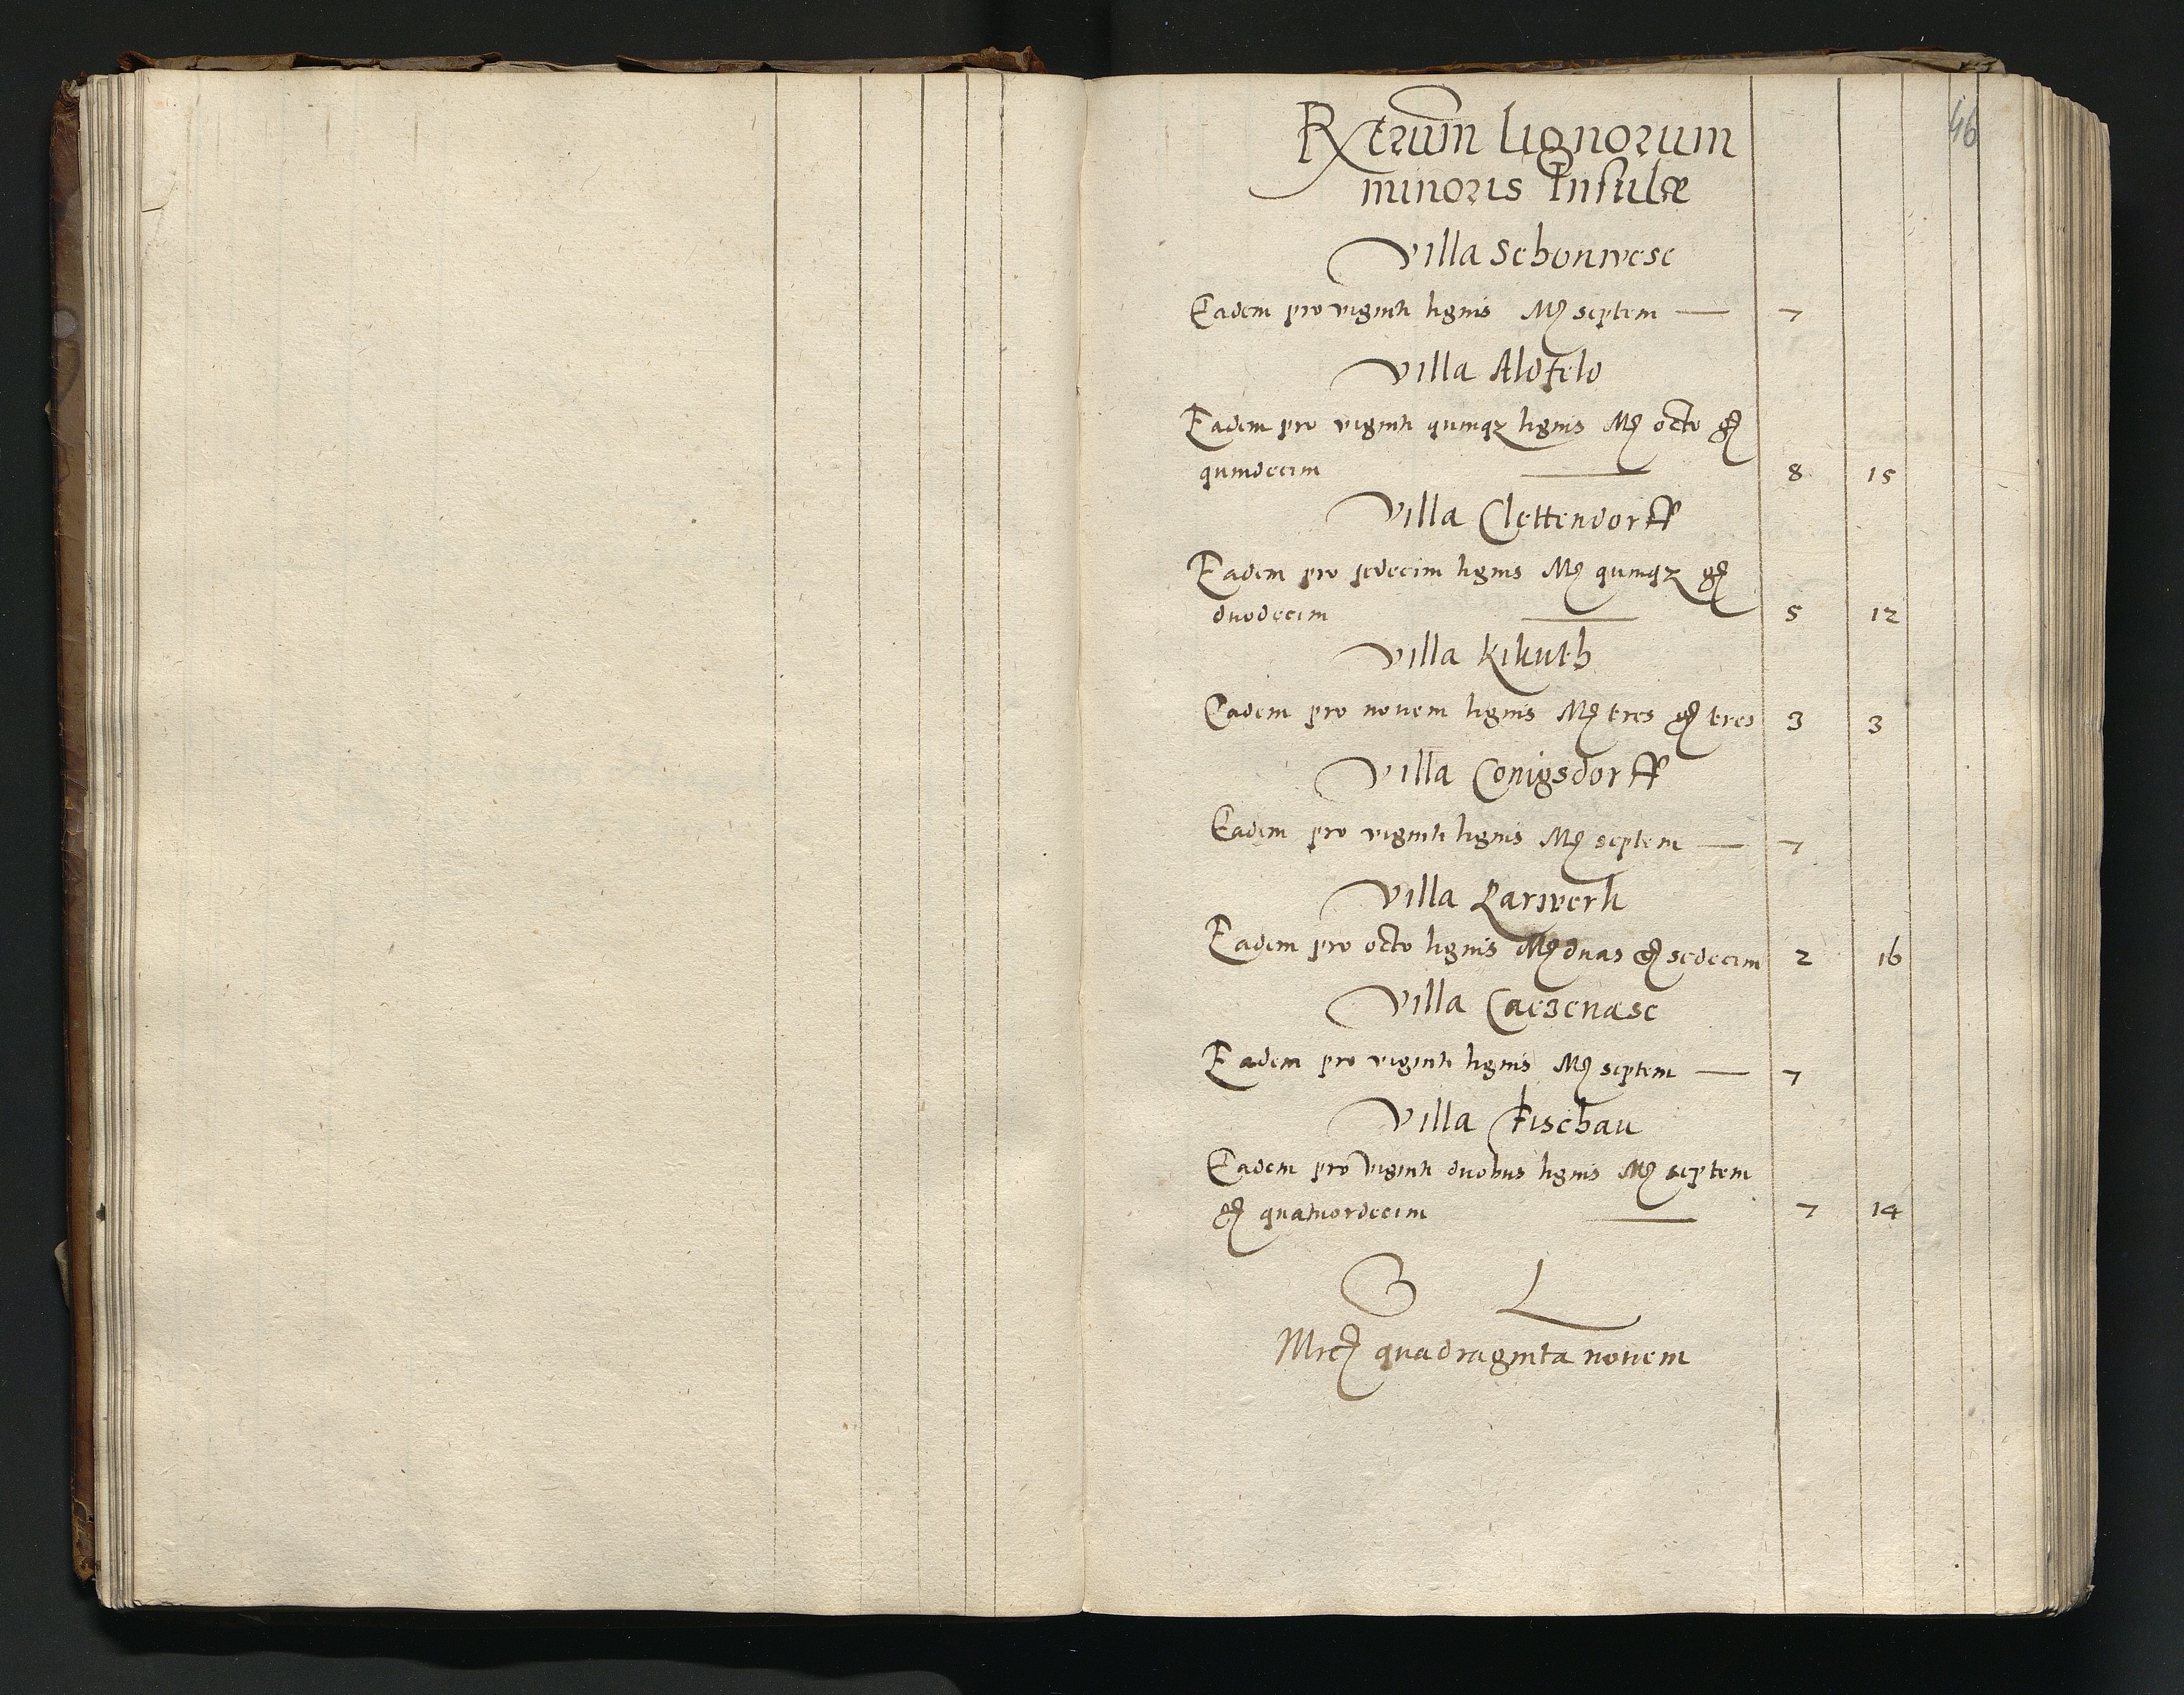 46
Rxtrum lignorum
minoris Insulæ
Villa Schonwese
Eadem pro viginti lignis Mr septem — 7
Villa Aldfeld
Eadem pro viginti quinqz lignis Mr octo gr
quindecim — 8 15
Villa Clettendorff
Eadem pro sedecim lignis Mr quinqz gr
duodecim — 5 12
Villa Kikuth
Eadem pro novem lignis Mr tres gr tres 3 3
Villa Conigsdorff
Eadem pro viginti lignis Mr septem — 7
Villa Parwerk
Eadem pro octo lignis Mr duas gr sedecim 2 16
Villa Caczenase
Eadem pro viginti lignis Mr septem — 7
Villa Fischau
Eadem pro viginti duobus lignis Mr septem
gr quatuordecim — 7 14
L
Mrc quadraginta novem